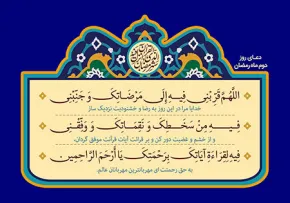 دعـای روز
دوم ماه رمضان
اَللّهُمَّ قَرِّبْنی فیهِ اِلی مَرْضاتِکَ وَ جَنِّبْنی
خدایا مرا در این روز به رضا و خشنودیت نزدیک ساز
فیهِ مِنْ سَخَطِکَ وَ نَقِماتِکَ وَ وَفِّقْنی
و از خشم و غضبت دور کن و بر قرائت آیات قرآنت موفق گردان،
فیهِ لِقِراءَةِ آیاتِکَ بِرَحْمَتِکَ یا أَرْحَمَ الرّاحِمینَ
به حق رحمتت ای مهربانترین مهربانان عالم.